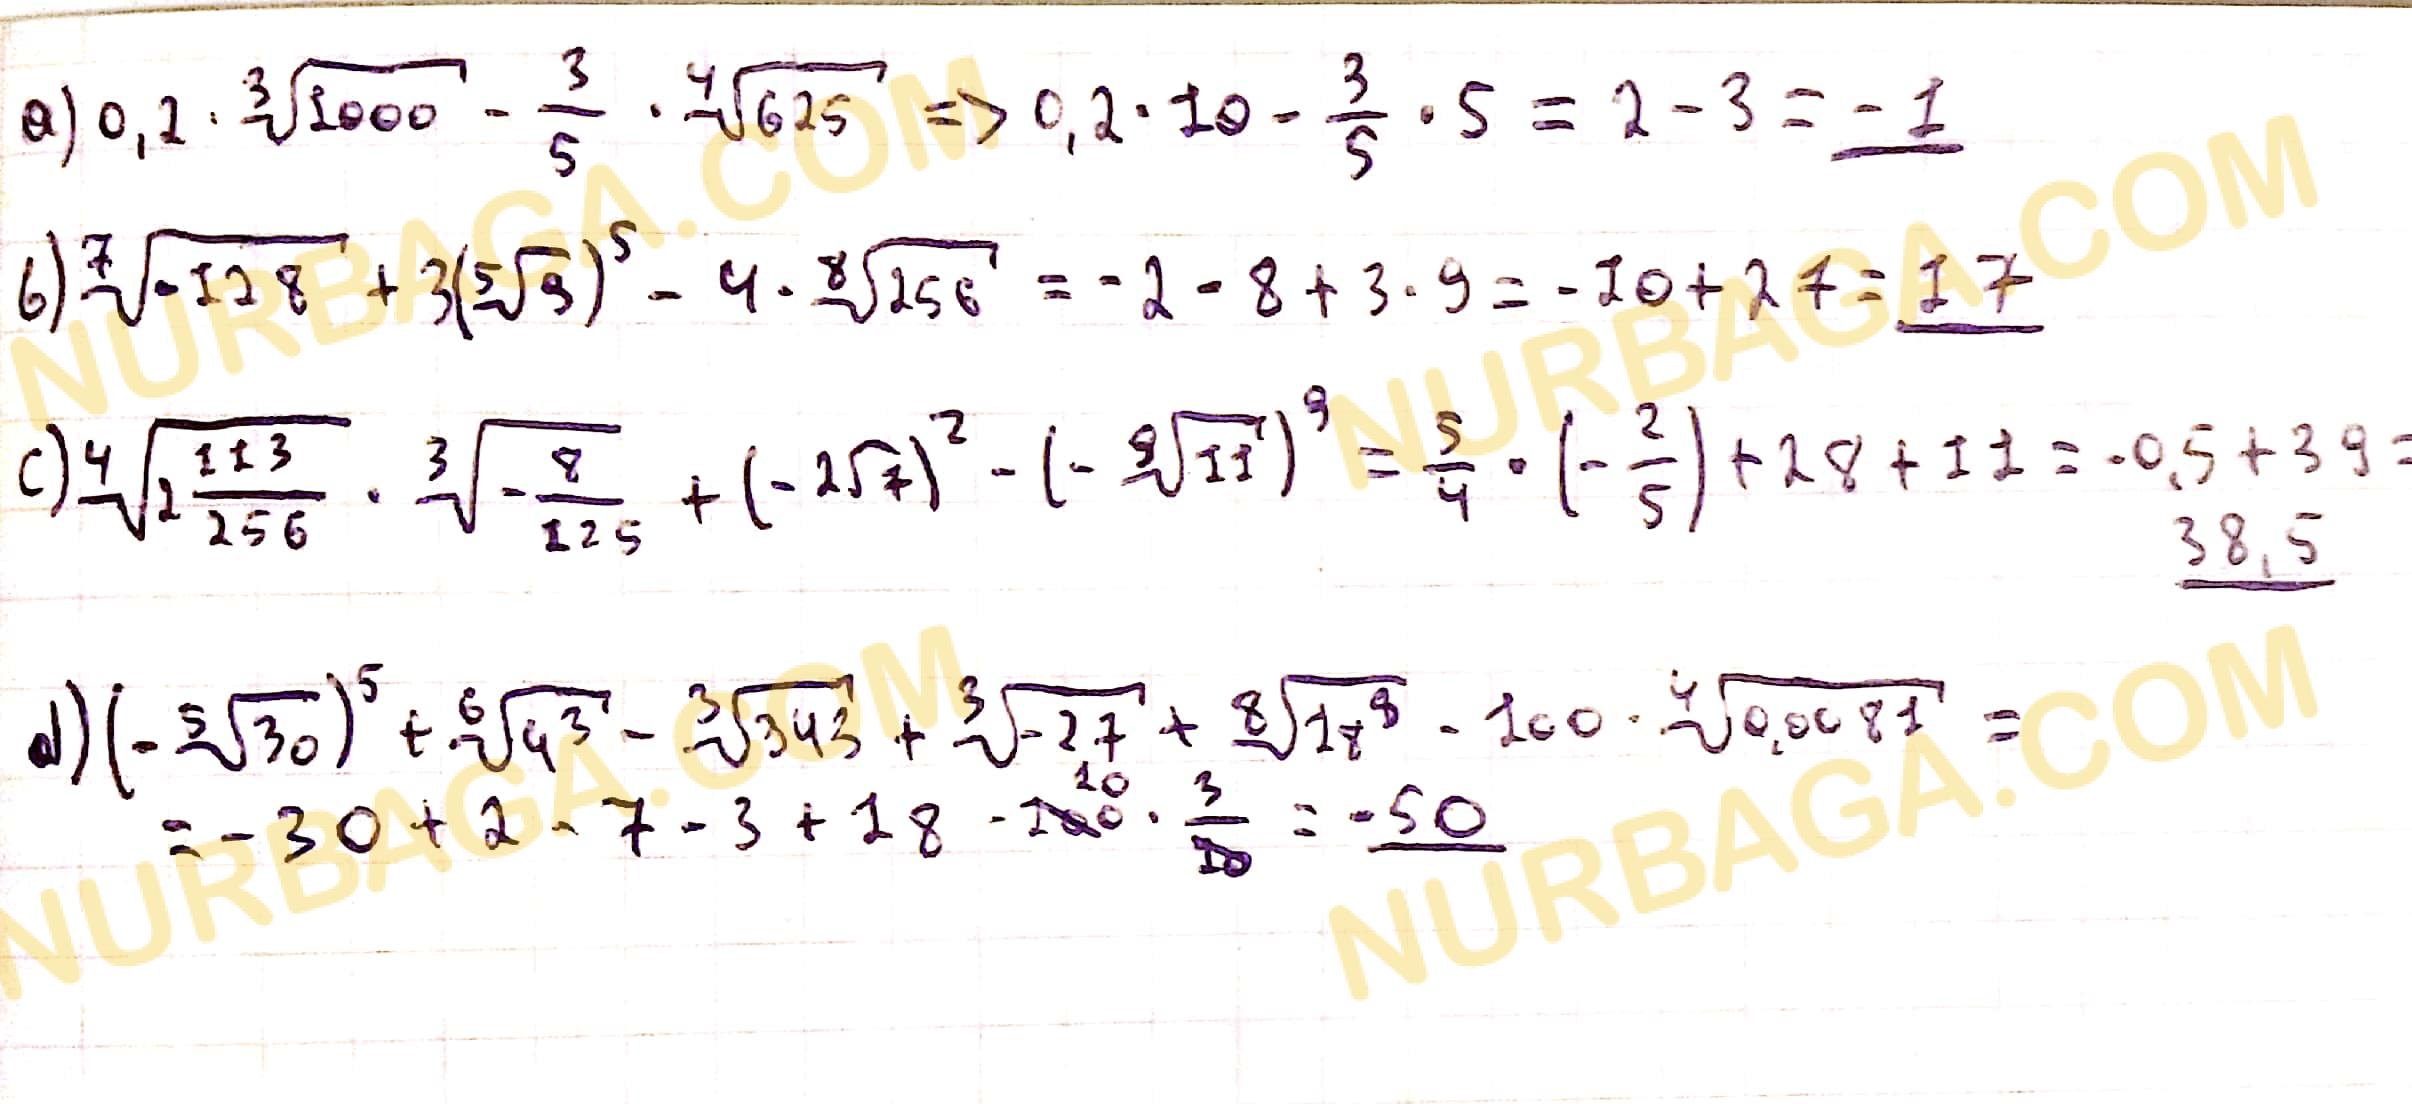 a) 0,2 · ³√1000 - 3/5 · ⁴√625 => 0,2 · 10 - 3/5 · 5 = 2 - 3 = -1
b) ⁷√-128 + 3(⁵√9)⁵ - 4 · ⁸√256 = -2 - 8 + 3 · 9 = -10 + 27 = 17
c) ⁴√(2 113/256) · ³√(-8/125) + (-2√7)² - (-⁹√11)⁹ = 5/4 · (-2/5) + 28 + 11 = -0,5 + 39 =
38,5
d) (-⁵√30)⁵ + ⁶√4³ - ³√343 + ³√-27 + ⁸√18⁸ - 100 · ⁴√0,0081 =
= -30 + 2 - 7 - 3 + 18 - 100 10 · 3/10 = -50
NURBAGA.COM
NURBAGA.COM
NURBAGA.COM
NURBAGA.COM